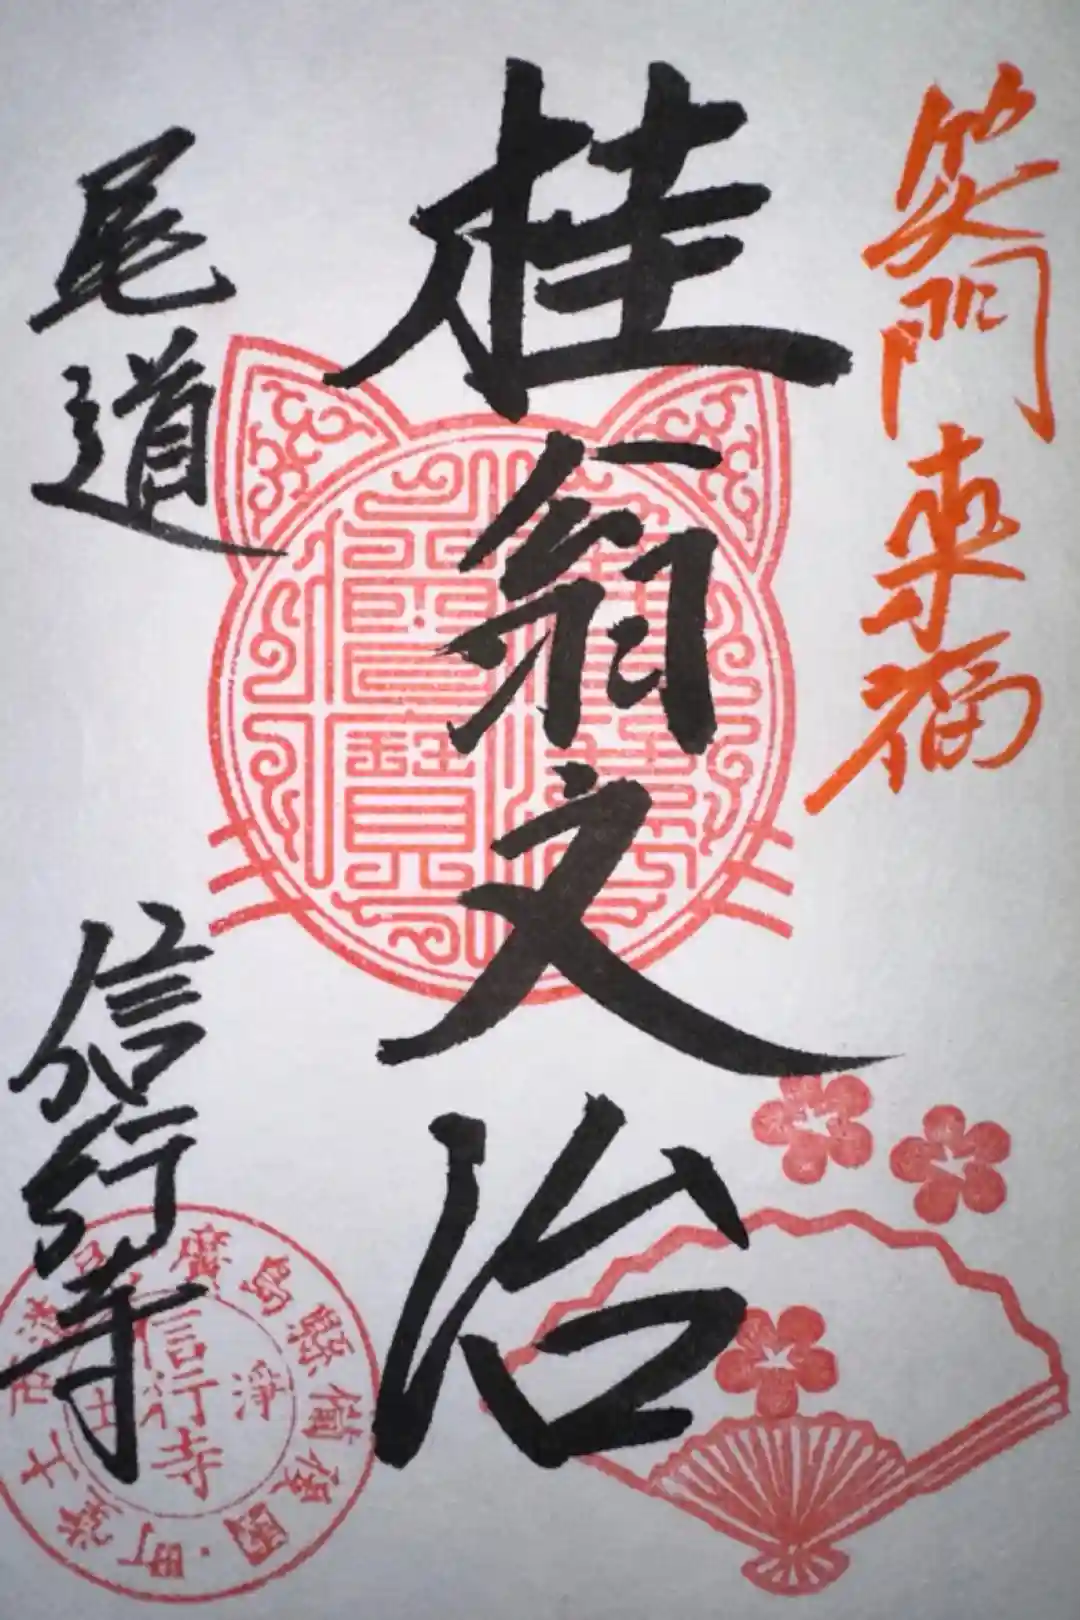 笑門来福
桂翁文治
尾道
信行寺
廣島縣備後國
信行寺